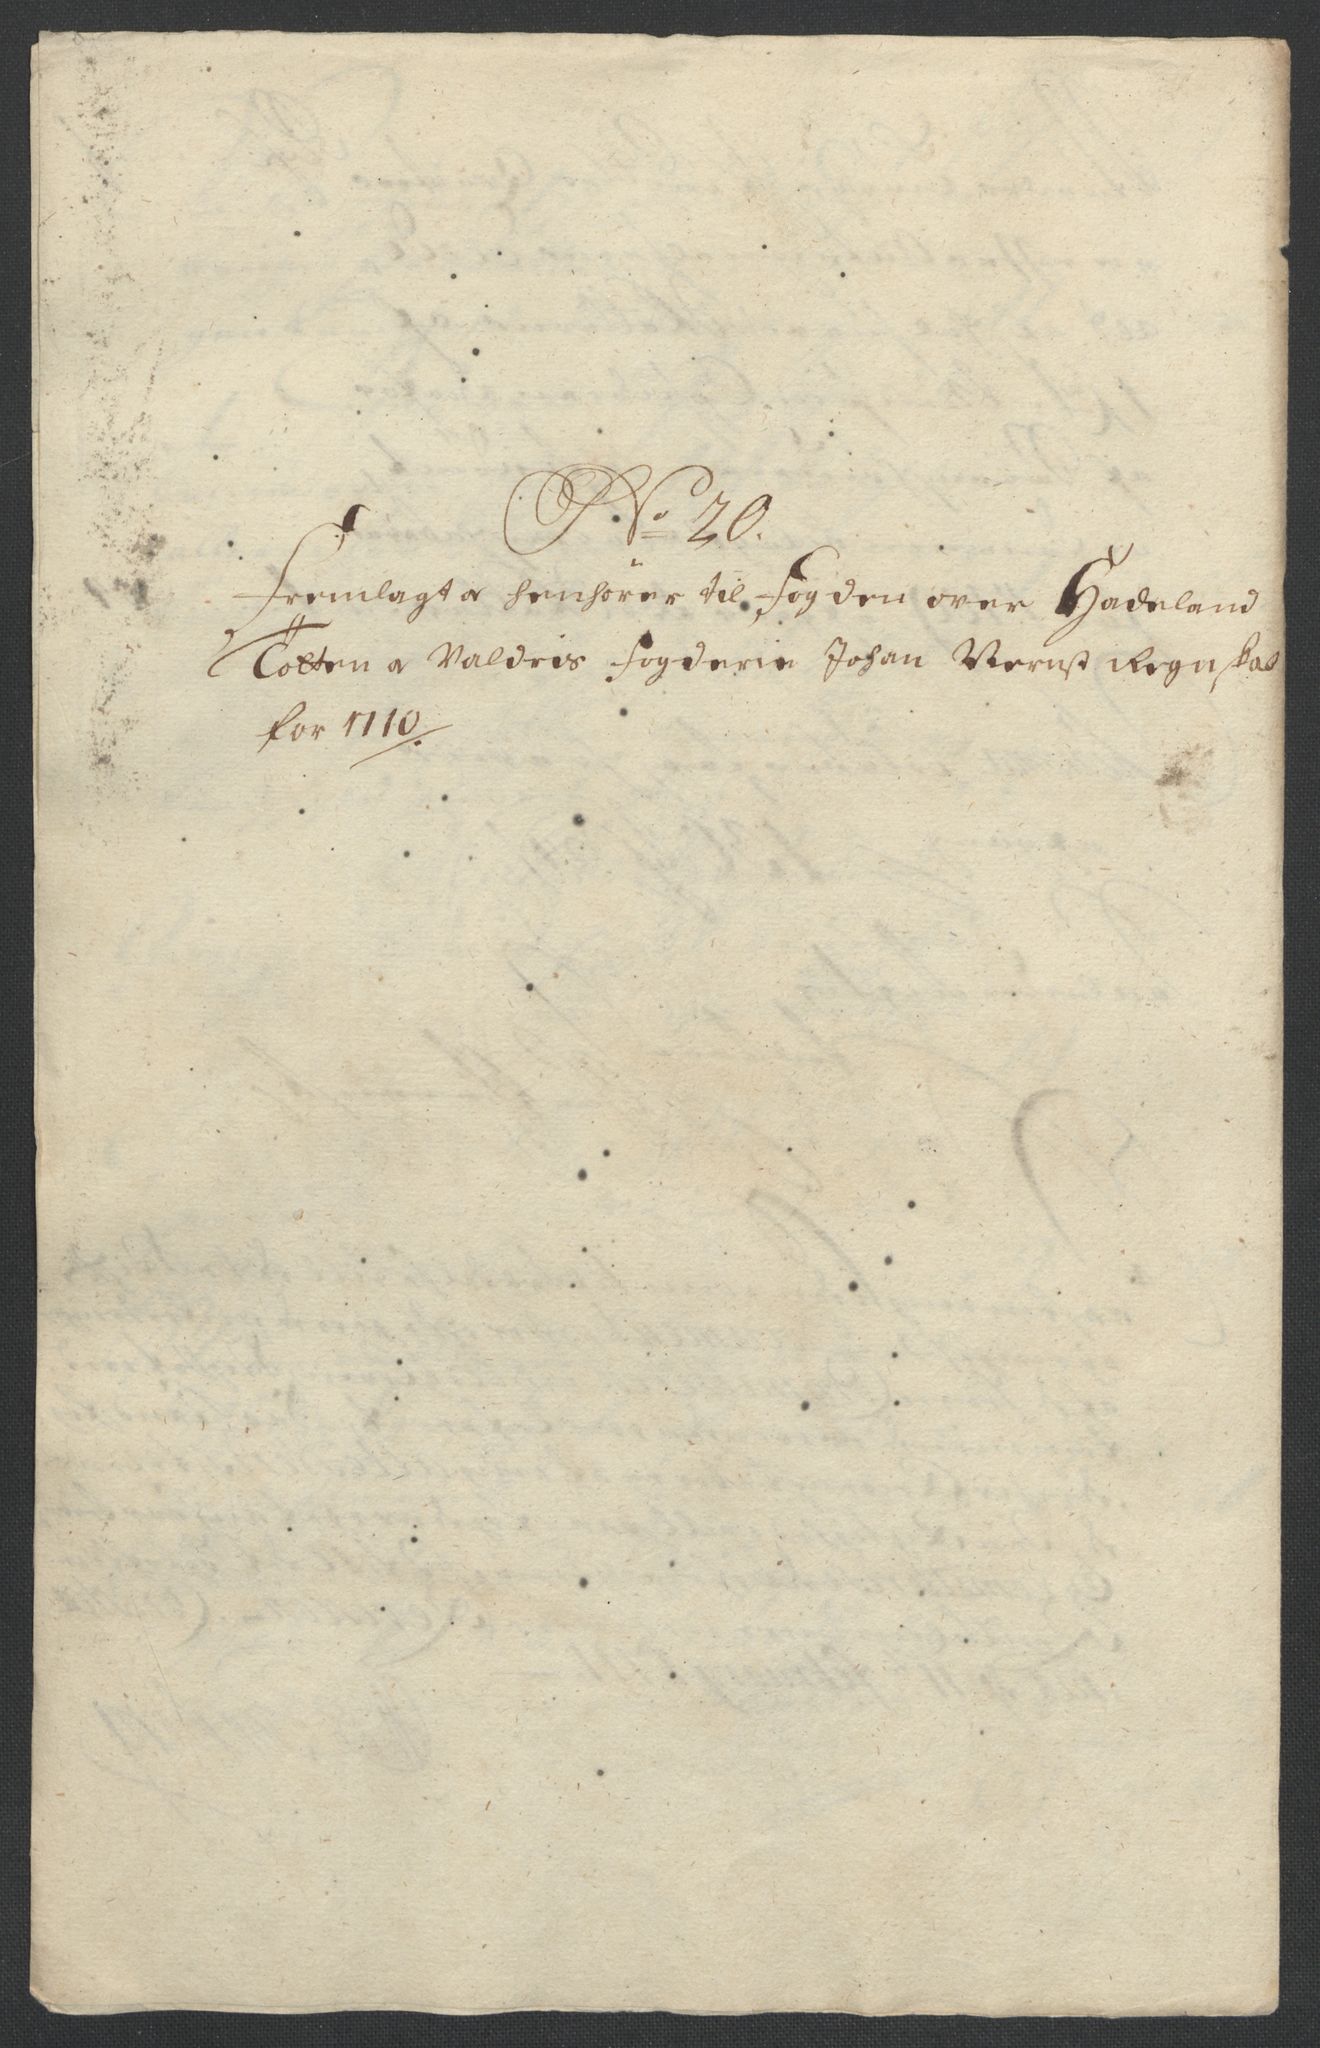 No 20.
Fremlagt & henhörer til Fogden over Hadeland
Totten & Valdris Fogderie Johan Wernst Regnskab
for 1710.